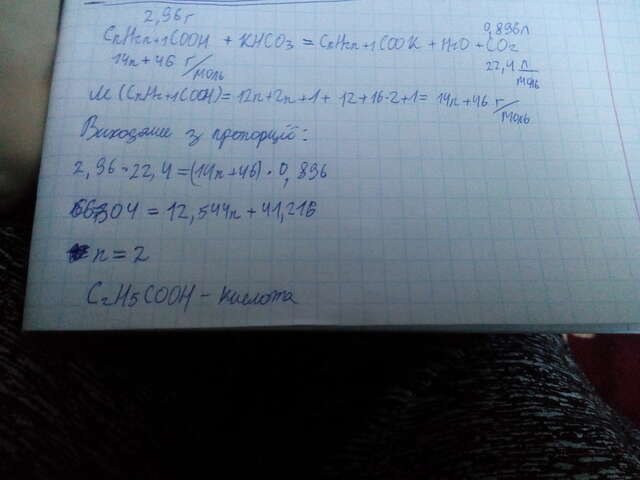 2,96 г
0,896л
CnH2n+1COOH + KHCO3 = CnH2n+1COOK + H2O + CO2
14n+46 г/моль
22,4 л/моль
M(CnH2n+1COOH) = 12n+2n+1+12+16·2+1 = 14n+46 г/моль
Виходячи з пропорції:
2,96·22,4=(14n+46)·0,896
66,304 = 12,544n+41,216
n=2
C2H5COOH – кислота